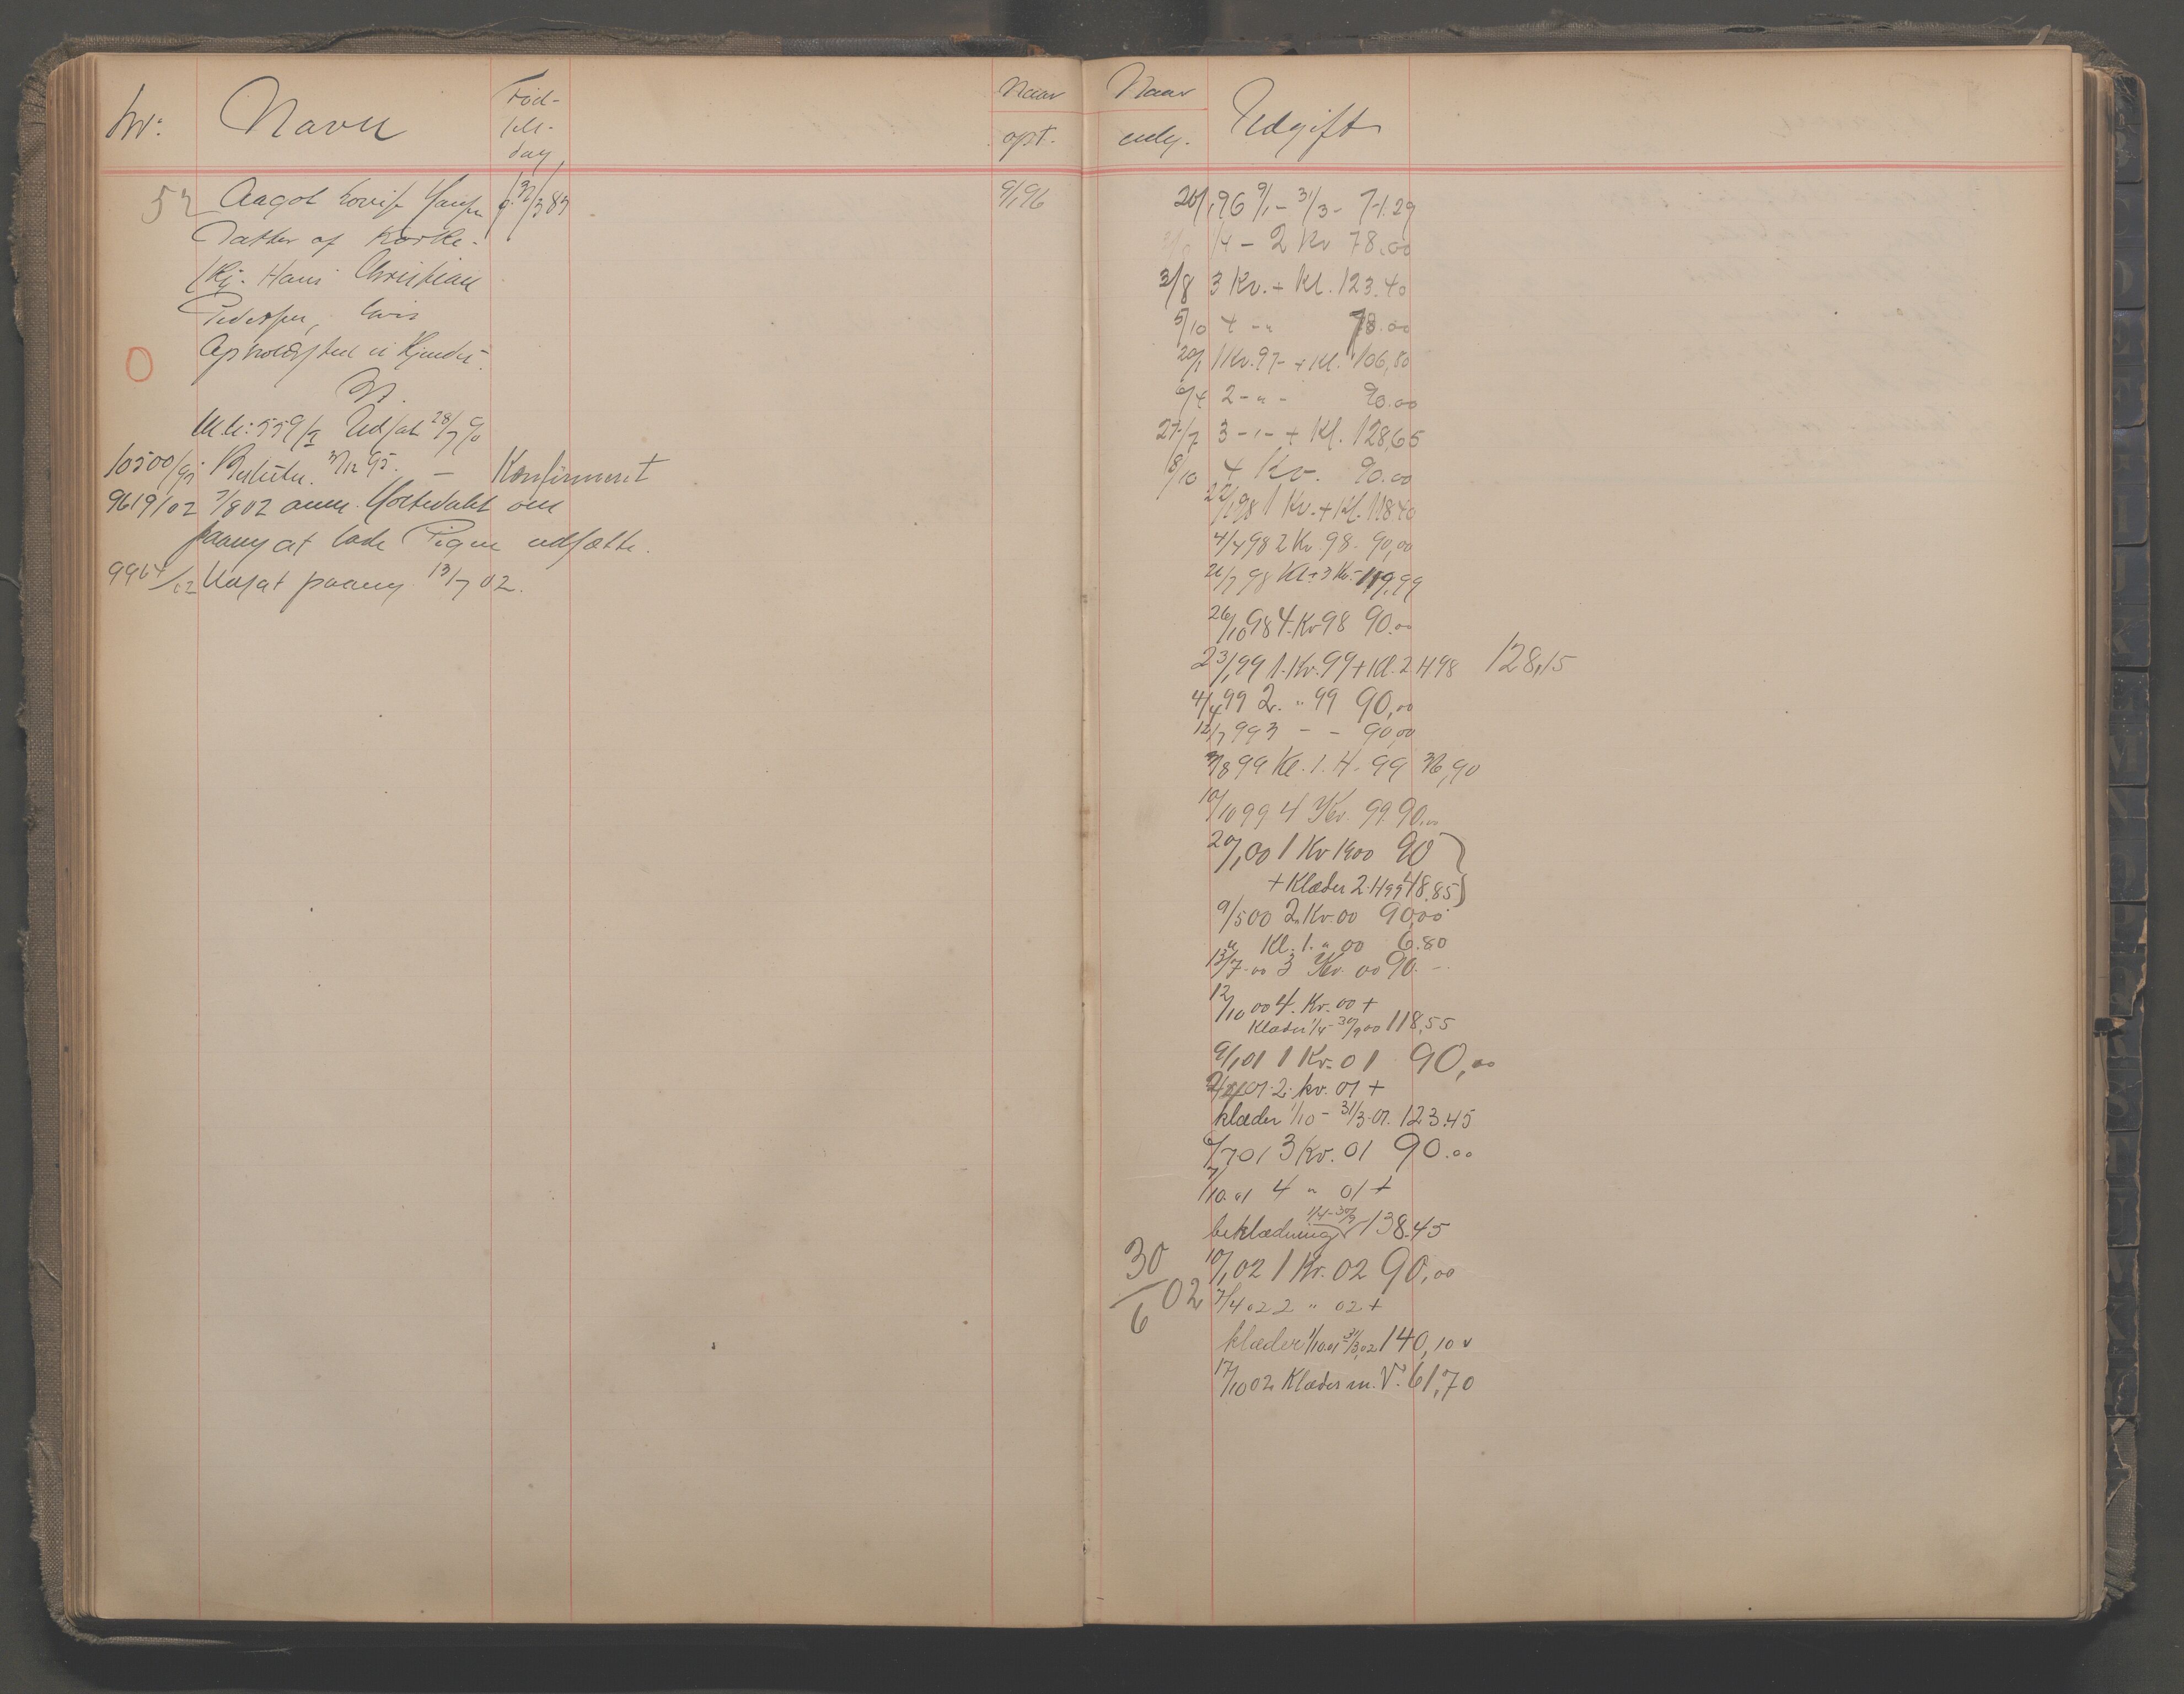 Nr. Navn Fød-
sels-
dag
Naar
opt.
52 Aagot Lovise Hansen f. 31/3 87 9/1 96
Datter af Korke-
skj. Hans Christian
Pedersen, hvis
Opholdssted ei Kjendes.
M.k: 559/ Udsat 28/7 90
10500/95 Beslutn. 31/12 95. — Konfirmeret
9619/02 7/8 02 anm. Hortedahl om
paany at lade Pigen udsætte.
9964/02 Udsat paany 13/7 02.
Naar
udg.
Udgift
20/1 96 9/1 - 31/3 - 71.29
1/4 - 2 Kv 78.00
3/8 3 Kv. + Kl. 123.40
5/10 4 - " 78.00
20/1 1 Kv. 97 - + Kl. 106,80
6/4 2 - " - 90.00
27/7 3 - " - + Kl. 128,65
8/10 4 Kv. 90.00
22/1 98 1 Kv. + Kl. 118.40
4/4 98 2 Kv. 98. 90,00
21/7 98 Kl + 3 Kv. 119,99
26/10 98 4. Kv 98 90.00
23/1 99 1. Kv. 99 + Kl. 2 H 98 128,15
4/4 99 2. " 99 90,00
12/7 99 3 - - 90,00
3/8 99 Kl. 1. H. 99 36,90
10/10 99 4 Kv. 99 90.00
20/1 00 1 Kv 1900 90
+ Klæder 2. H 99 48.85
9/5 00 2. Kv. 00 90,00
" Kl. 1. " 00 6.80
13/7 00 3 Kv. 00 90. -
12/10 00 4. Kv. 00 +
Klæder 1/4 - 30/9 00 118,55
9/1 01 1 Kv. 01 90,00
2/4 01 2. kv. 01 +
klæder 1/10 - 31/3 01. 123.45
6/7 01 3 Kv. 01 90.00
7/10. 01 4 " 01 +
1/4 - 30/9
beklædning 138.45
10/1 02 1 Kv. 02 90,00
30/6 02 7/4 02 2 " 02 +
klæder 1/10 01 31/3 02 140,10
17/10 02 Klæder m. V. 61,70